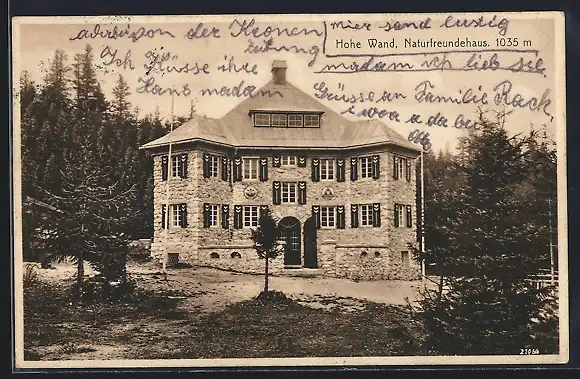 adirbison der Kronen
zeitung
Ich Küsse ihre
Hant madam
mier sand lustig
Hohe Wand, Naturfreundehaus. 1035 m
madam ich lieb sie
Grüsse an Familie Rack,
i woa a da bei
21066